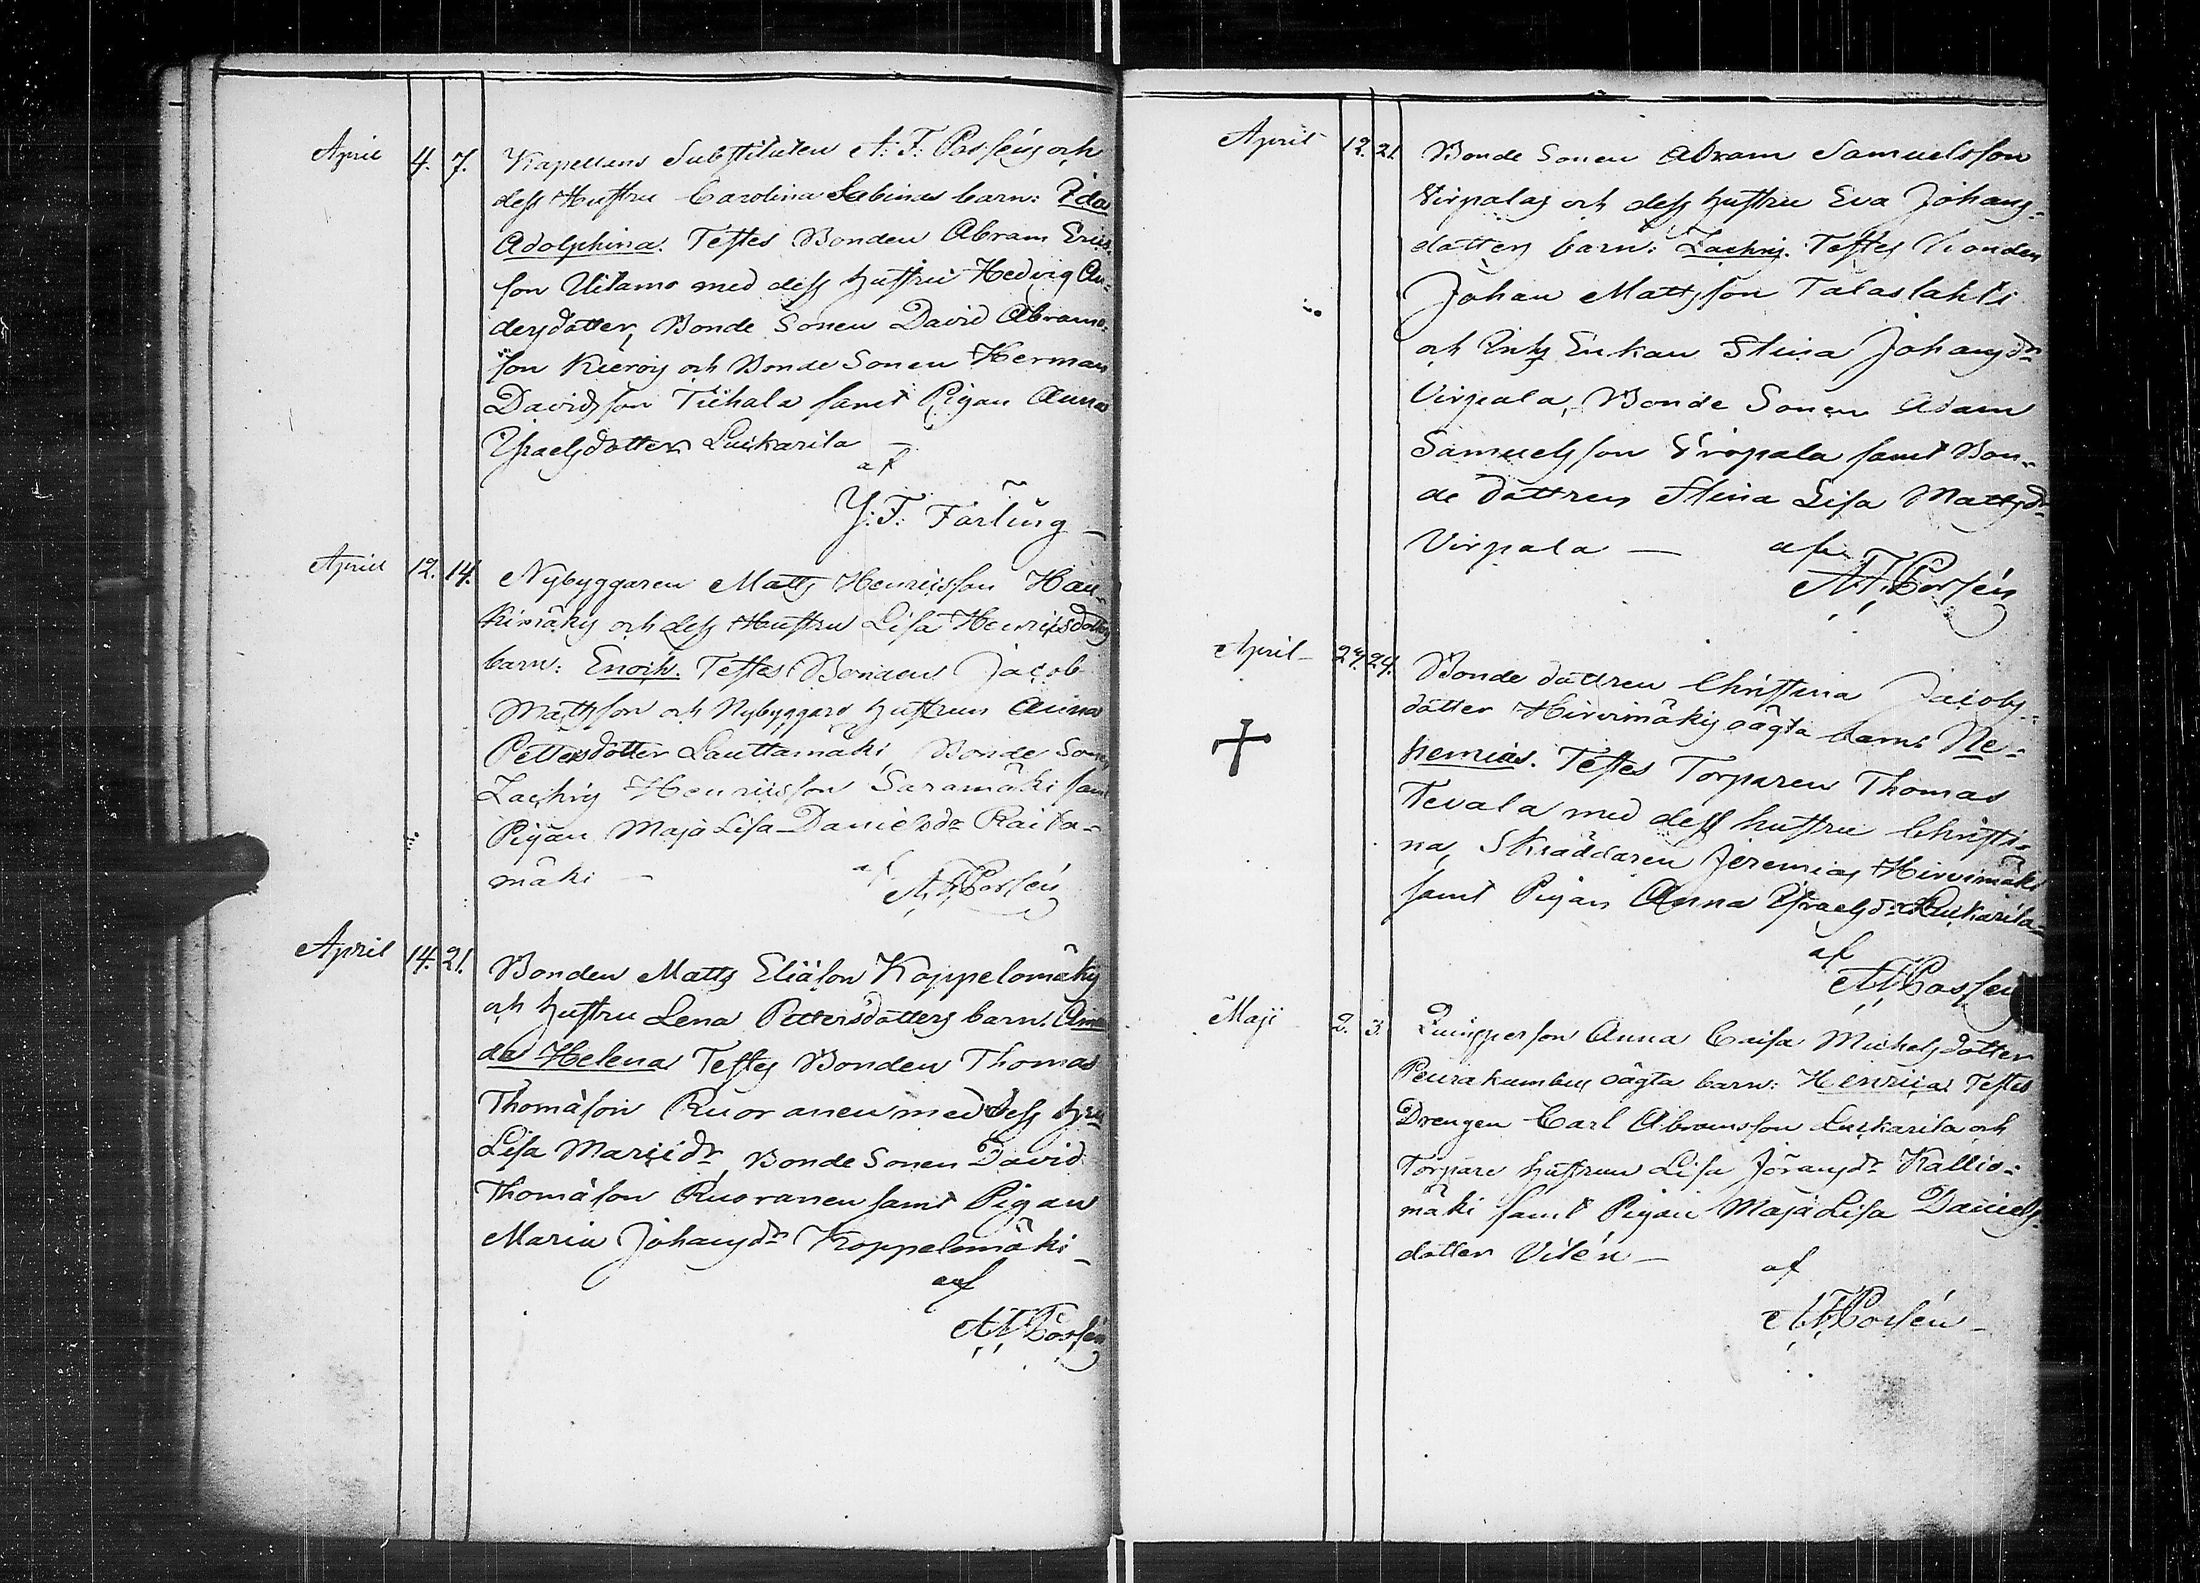 April 4. 7. Kapellans Substituten A: F: Porséns och
dess Hustru Carolina Sabinas barn: Ida
Adolphina. Testes Bonden Abram Erics-
son Uitamo med dess hustru Hedvig An-
dersdotter, Bonde Sonen David Abrams-
son Kierois och Bonde Sonen Herman
Davidsson Tiihala samt Pigan Anna
Ysraelsdotter Luikarila —
af
Y: F: Färling —
April 12. 14. Nybyggaren Matts Henricsson Hau-
kimäkis och dess Hustru Lisa Henricsdotters
barn: Enoch. Testes Bonden Jacob
Mattsson och Nybyggars hustrun Anna
Pettersdotter Lauttamäki, Bonde Sonen
Zachris Henricsson Saramäki samt
Pigan Maja Lisa Danielsdr Raita-
mäki —
af
A. F. Porsén
April 14. 21. Bonden Matts Eliäson Koppelomäkis
och hustru Lena Pettersdotters barn. Aman-
da Helena Testes Bonden Thomas
Thomäson Ruoranen med dess hru
Lisa Mariedr, Bonde Sonen David
Thomäson Ruoranen samt Pigan
Maria Johansdr Koppelomäki —
af
A. F. Porsén
April 12. 21. Bonde Sonen Abram Samuelsson
Virpalas och dess hustru Eva Johans-
dotters barn: Zachris. Testes Bonden
Johan Mattsson Talaslahti
och Enkan Stina Johansdr
Virpala, Bonde Sonen Adam
Samuelsson Virpala samt Bon-
de dottren Stina Lisa Mattsdr
Virpala — af
A. F. Porsén
April — 24. Bonde dottren Christina Jacobs-
dotter Hirvimäkis oägta barn: Ne-
hemias. Testes Torparen Thomas
Tevala med dess hustru Christi-
na, Skräddaren Jeremias Hirvimäki
samt Pigan Anna Ysraelsdr Luikarila —
af
A. F. Porsén
Maji 2. 3. Qvinsperson Anna Caisa Michelsdotter
Peurakumbus oägta barn: Henrica Testes
Drengen Carl Abramsson Luikarila och
Torpare hustrun Lisa Göransdr Kallio-
mäki samt Pigan Maja Lisa Daniels-
dotter Vilén —
af
A. F. Porsén —